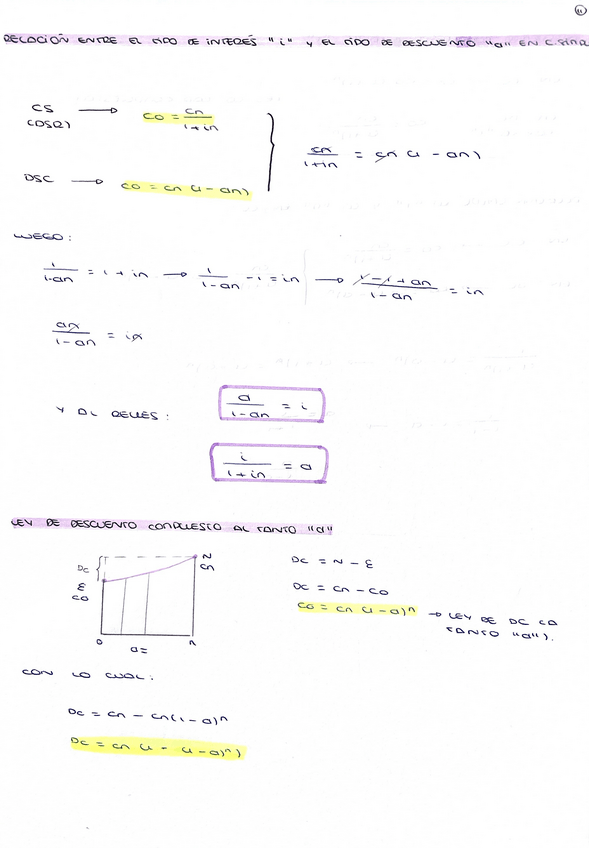 11
RELACIÓN ENTRE EL TIPO DE INTERÉS "i" Y EL TIPO DE DESCUENTO "d" EN C. SIMPL
CS → C0 = Cn / 1+in
(DSR)
DSC → C0 = Cn (1 - dn)
Cn / 1+in = Cn (1 - dn)
LUEGO:
1 / 1-dn = 1 + in → 1 / 1-dn - 1 = in → 1 - 1 + dn / 1-dn = in
dn / 1-dn = in
Y AL REVES:
d / 1-dn = i
i / 1+in = d
LEY DE DESCUENTO COMPUESTO AL TANTO "d"
Dc
E
C0
N
Cn
0
n
d =
Dc = N - E
Dc = Cn - C0
C0 = Cn (1-d)^n → LEY DE DC (A
TANTO "d").
CON LO CUAL:
Dc = Cn - Cn(1-d)^n
Dc = Cn (1 - (1-d)^n)